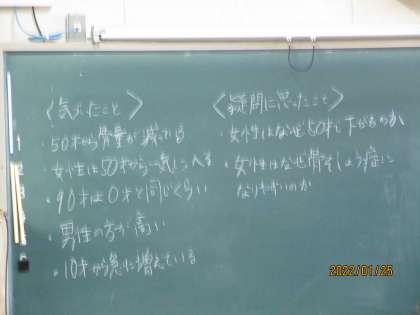 〈気づいたこと〉
・50才から骨量が減っている
・女性は50才から一気にへる
・90才は0才と同じくらい
・男性の方が高い
・10才から急に増えている
〈疑問に思ったこと〉
・女性はなぜ50才で下がるのか
・女性はなぜ骨そしょう症に
なりやすいのか
2022/01/25